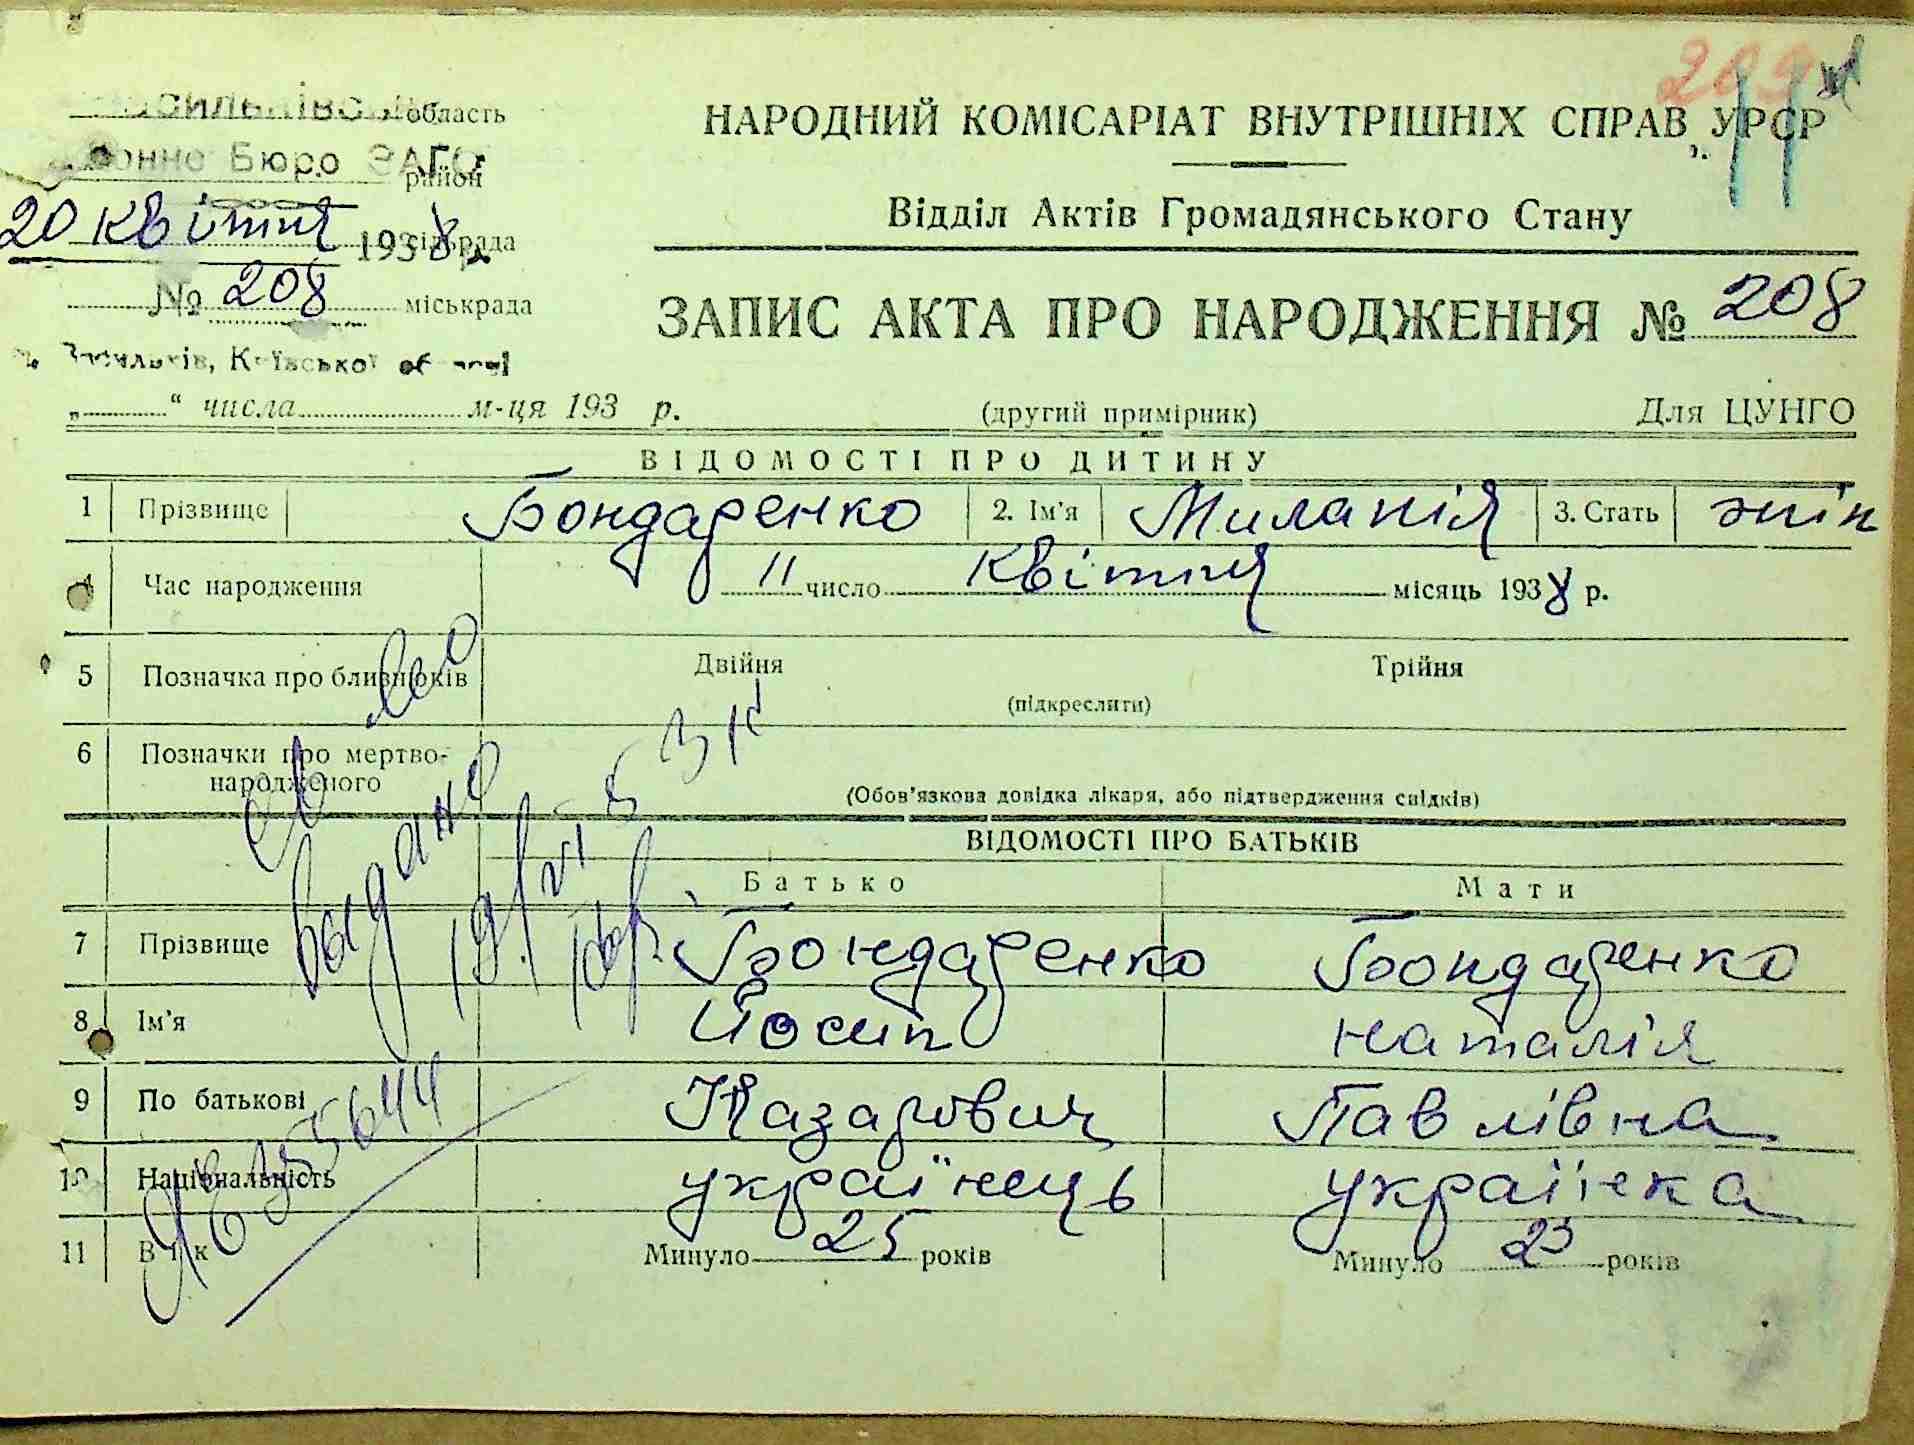 209
НАРОДНИЙ КОМІСАРІАТ ВНУТРІШНІХ СПРАВ УРСР
область
Бюро ЗАГС
район
Відділ Актів Громадянського Стану
20 квітня 1938 р.
сільрада
№ 208 міськрада
ЗАПИС АКТА ПРО НАРОДЖЕННЯ № 208
м. Васильків, Київської області
„ “ числа м-ця 193 р. (другий примірник) Для ЦУНГО
ВІДОМОСТІ ПРО ДИТИНУ
1 Прізвище Бондаренко 2. Ім'я Миланія 3. Стать жін
4 Час народження 11 число квітня місяць 1938 р.
5 Позначка про близнюків Двійня Трійня
(підкреслити)
6 Позначки про мертво-
народженого
(Обов'язкова довідка лікаря, або підтвердження свідків)
ВІДОМОСТІ ПРО БАТЬКІВ
Батько Мати
7 Прізвище Бондаренко Бондаренко
8 Ім'я Йосип Наталія
9 По батькові Назарович Павлівна
10 Національність українець українка
11 Вік Минуло 25 років Минуло 23 років
св-во
выдано
19/VI-53